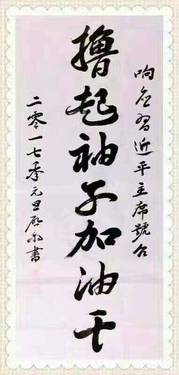 响应习近平主席號召
撸起袖子加油干
二零一七年元旦